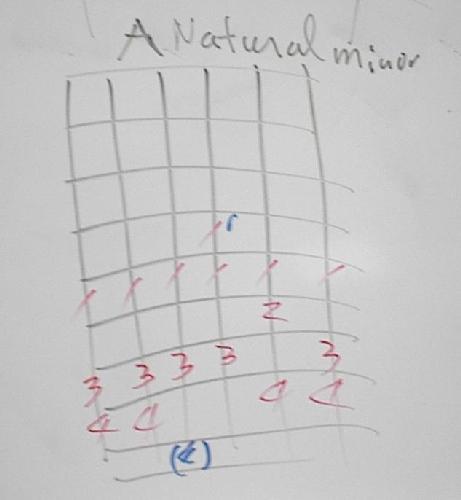 A Natural minor
1 1
1 1 1 1 1 1
2
3 3 3 3 3
4 4 4 4
(4)